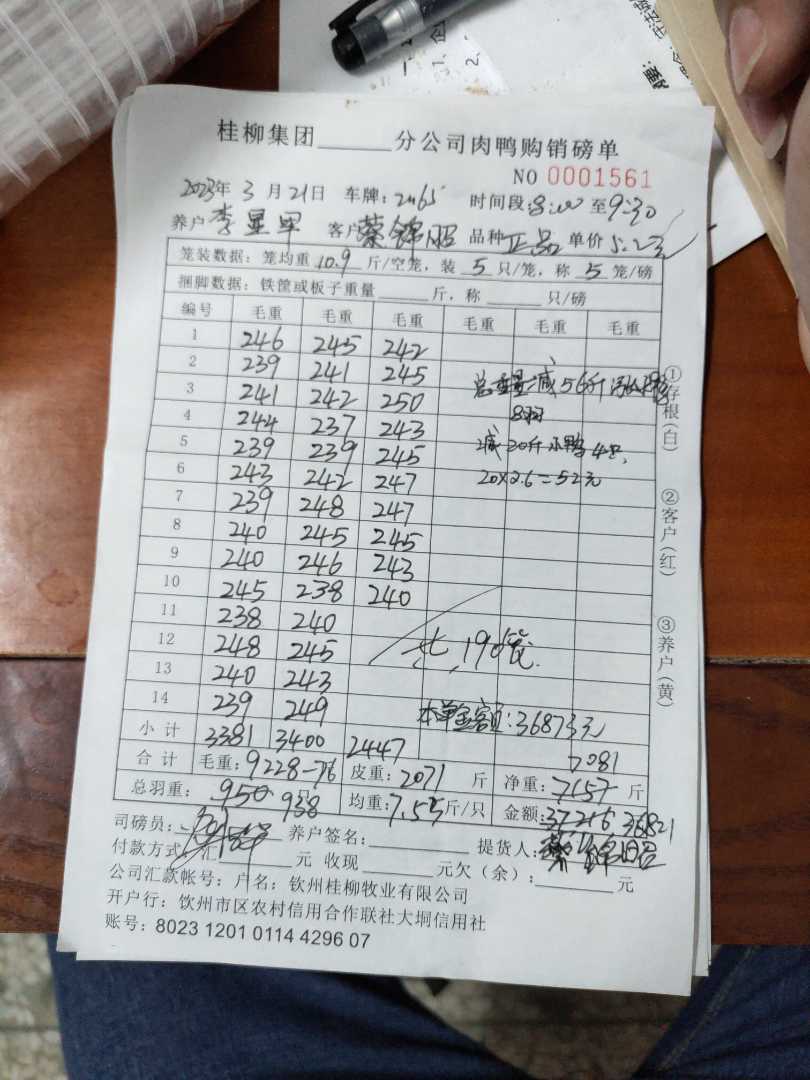 桂柳集团 分公司肉鸭购销磅单
NO 0001561
2023年 3 月 21日 车牌: 2465 时间段: 8:00 至 9:30
养户 李显军 客户 蔡锦昭 品种 正品 单价 5.2元
笼装数据: 笼均重 10.9 斤/空笼, 装 5 只/笼, 称 5 笼/磅
捆脚数据: 铁筐或板子重量 斤, 称 只/磅
编号 毛重 毛重 毛重 毛重 毛重 毛重
1 246 245 242
2 239 241 245
3 241 242 250
总重量减56斤
4 244 237 243
8羽
5 239 239 245
减20斤小鸭4只,
6 243 242 247
20×2.6=52元
7 239 248 247
8 240 245 245
9 240 246 243
10 245 238 240
11 238 240
12 248 245
共190笼.
13 240 243
14 239 249
本单金额: 36873元
小计 3381 3400 2447
7081
合计 毛重: 9228-76 皮重: 2071 斤 净重: 7157 斤
总羽重: 950 只 938 均重: 7.55斤/只 金额: 37216 36821
司磅员: 养户签名: 提货人: 蔡锦昭
付款方式: 汇 元 收现 元欠(余): 元
公司汇款帐号: 户名: 钦州桂柳牧业有限公司
开户行: 钦州市区农村信用合作联社大垌信用社
账号: 8023 1201 0114 4296 07
①存根(白)
②客户(红)
③养户(黄)